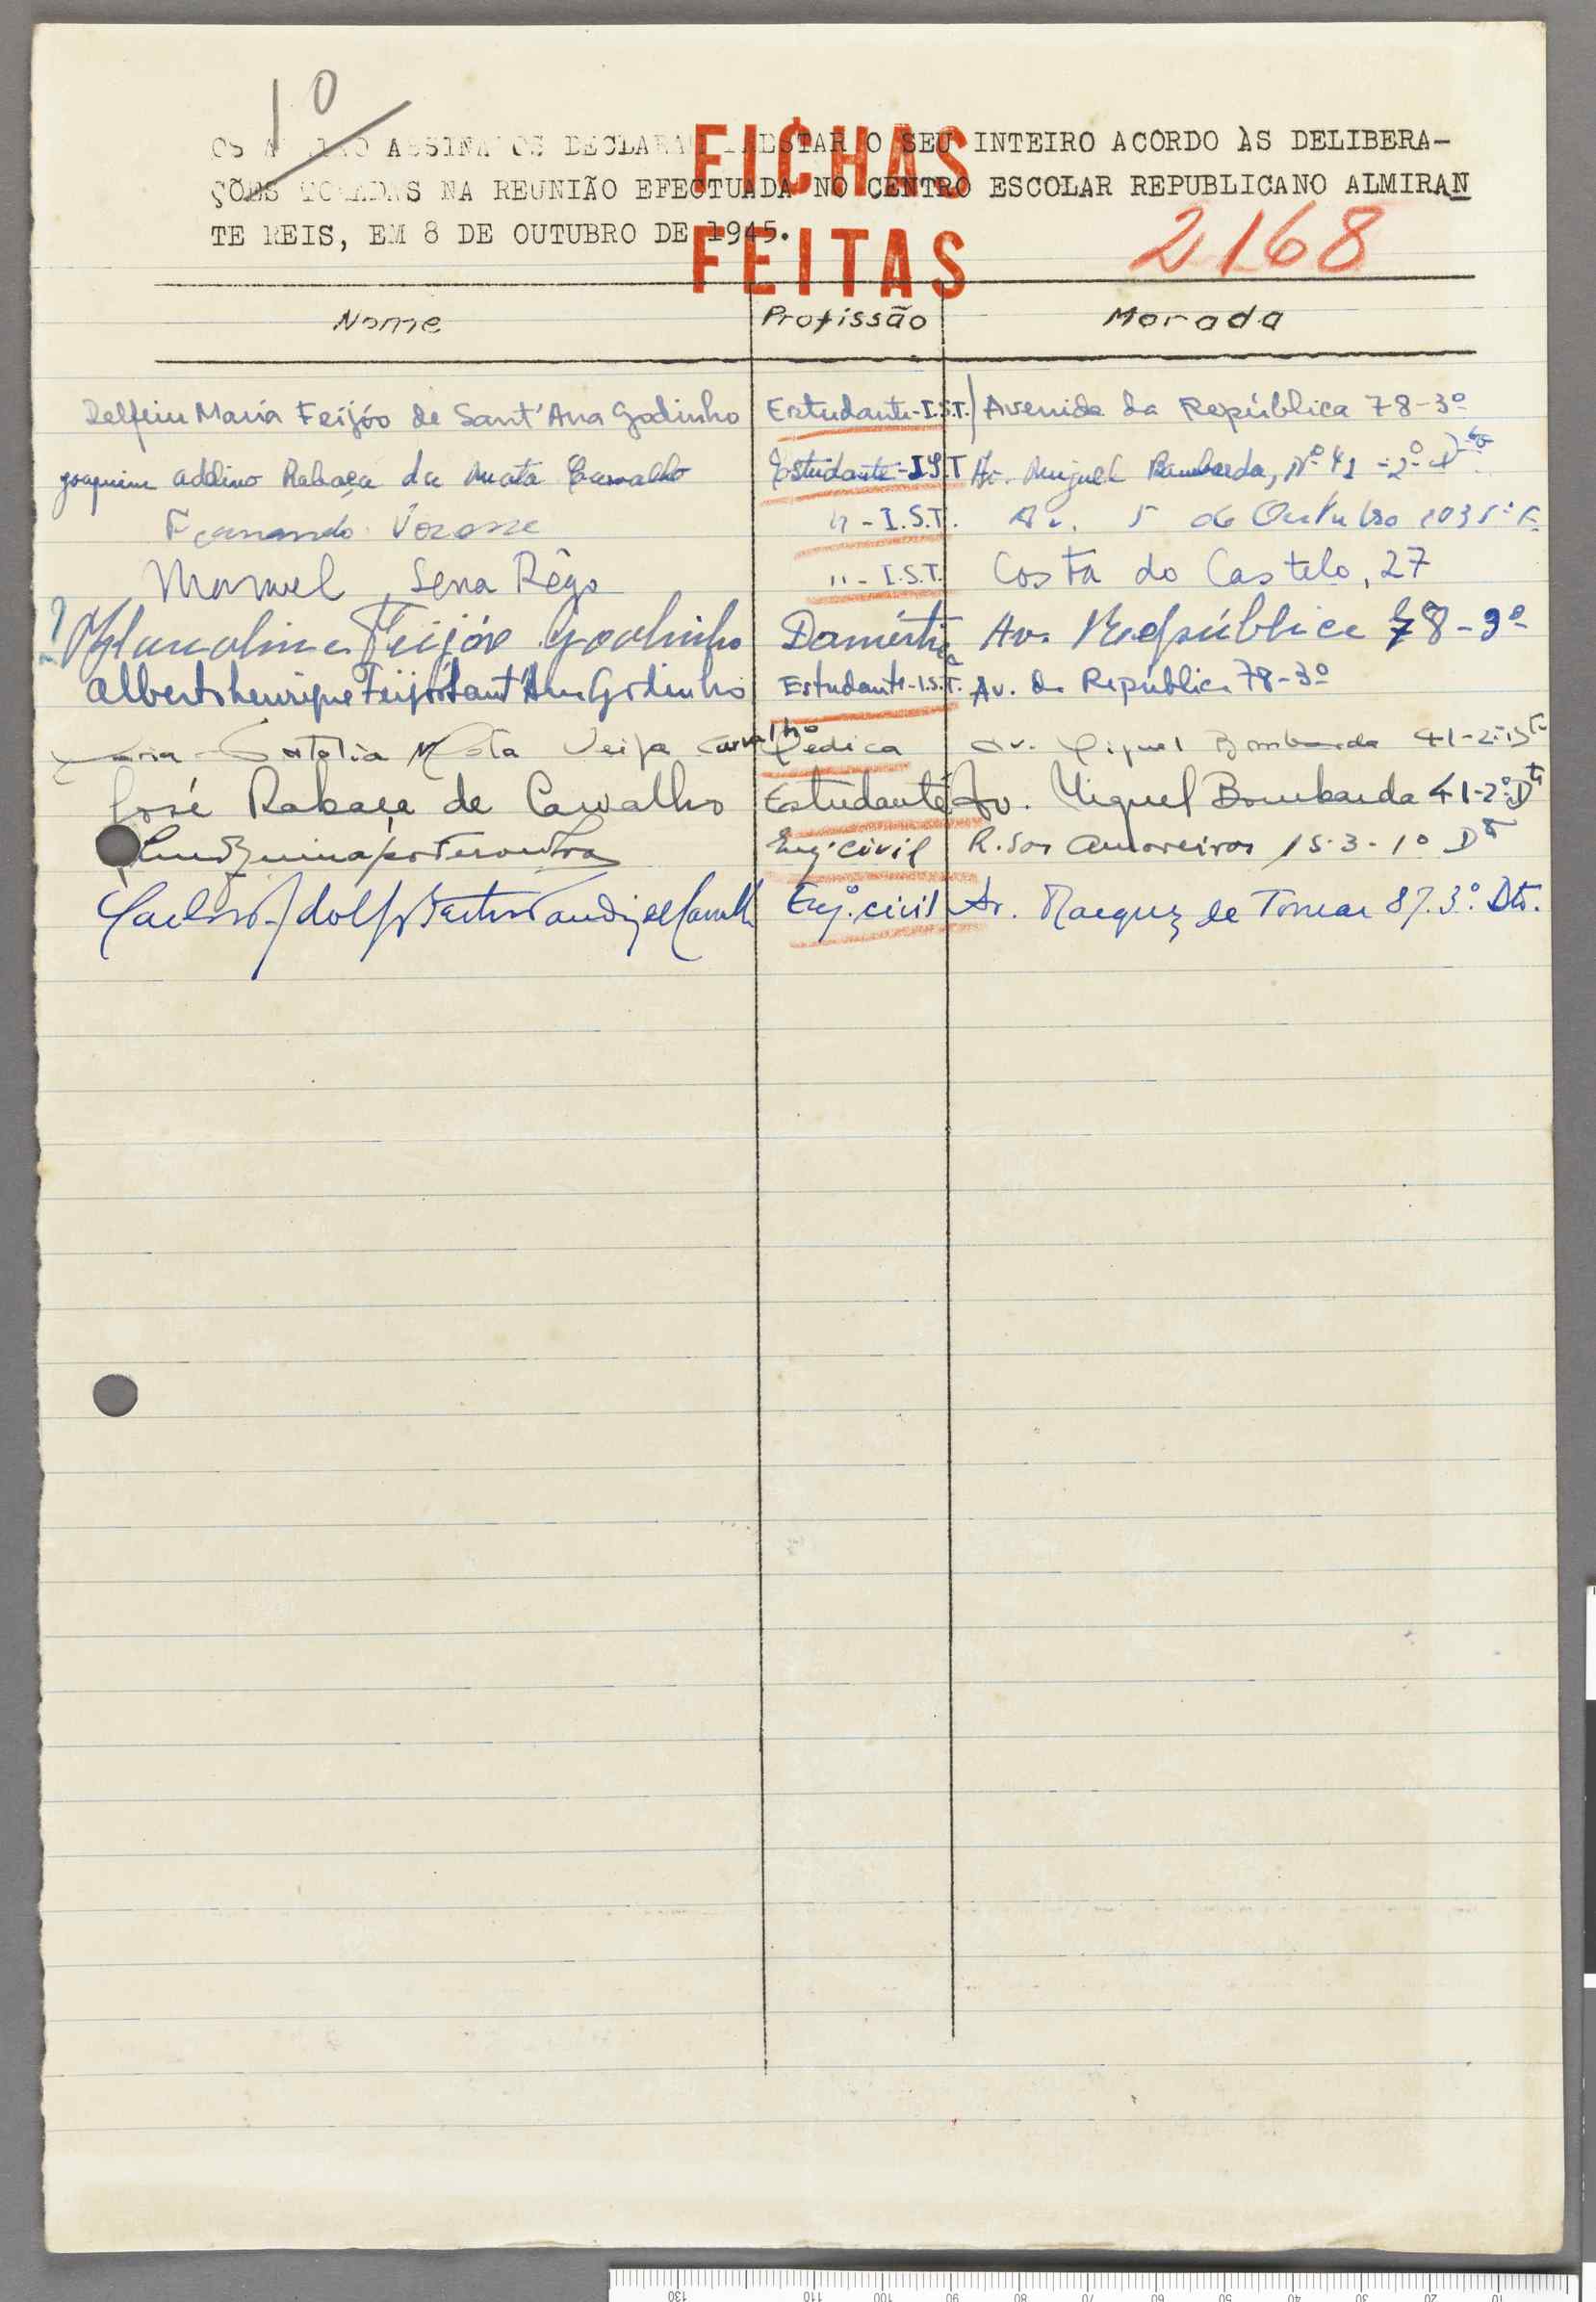 10
FICHAS
OS ABAIXO ASSINADOS DECLARAM PRESTAR O SEU INTEIRO ACORDO ÀS DELIBERA-
ÇÕES TOMADAS NA REUNIÃO EFECTUADA NO CENTRO ESCOLAR REPUBLICANO ALMIRAN
TE REIS, EM 8 DE OUTUBRO DE 1945.
FEITAS
2168
Nome Profissão Morada
Delfim Maria Feijóo de Sant'Ana Godinho Estudante-I.S.T. Avenida da República 78-3º
Joaquim Rabaça da Mata Carvalho Estudante-I.S.T Av. Miguel Bombarda, Nº 41-2º Dto
Fernando "-I.S.T. Av. 5 de Outubro
Manuel Sena Rêgo "-I.S.T. Costa do Castelo, 27
? Feijóo Godinho Doméstica Av. República 78-3º
Alberto Henrique Feijóo Sant'Ana Godinho Estudante-I.S.T. Av. da República 78-3º
Maria Natália Mota Veiga Carvalho Médica Av. Miguel Bombarda 41-2º Dto
José Rabaça de Carvalho Estudante Av. Miguel Bombarda 41-2º Dto
Engº civil R. das Amoreiras 153-1º Dto
Carlos Adolfo Engº. civil Av. Marquez de Tomar 87.3º. Dto.
130 110 100 90 80 70 60 50 40 30 20 10